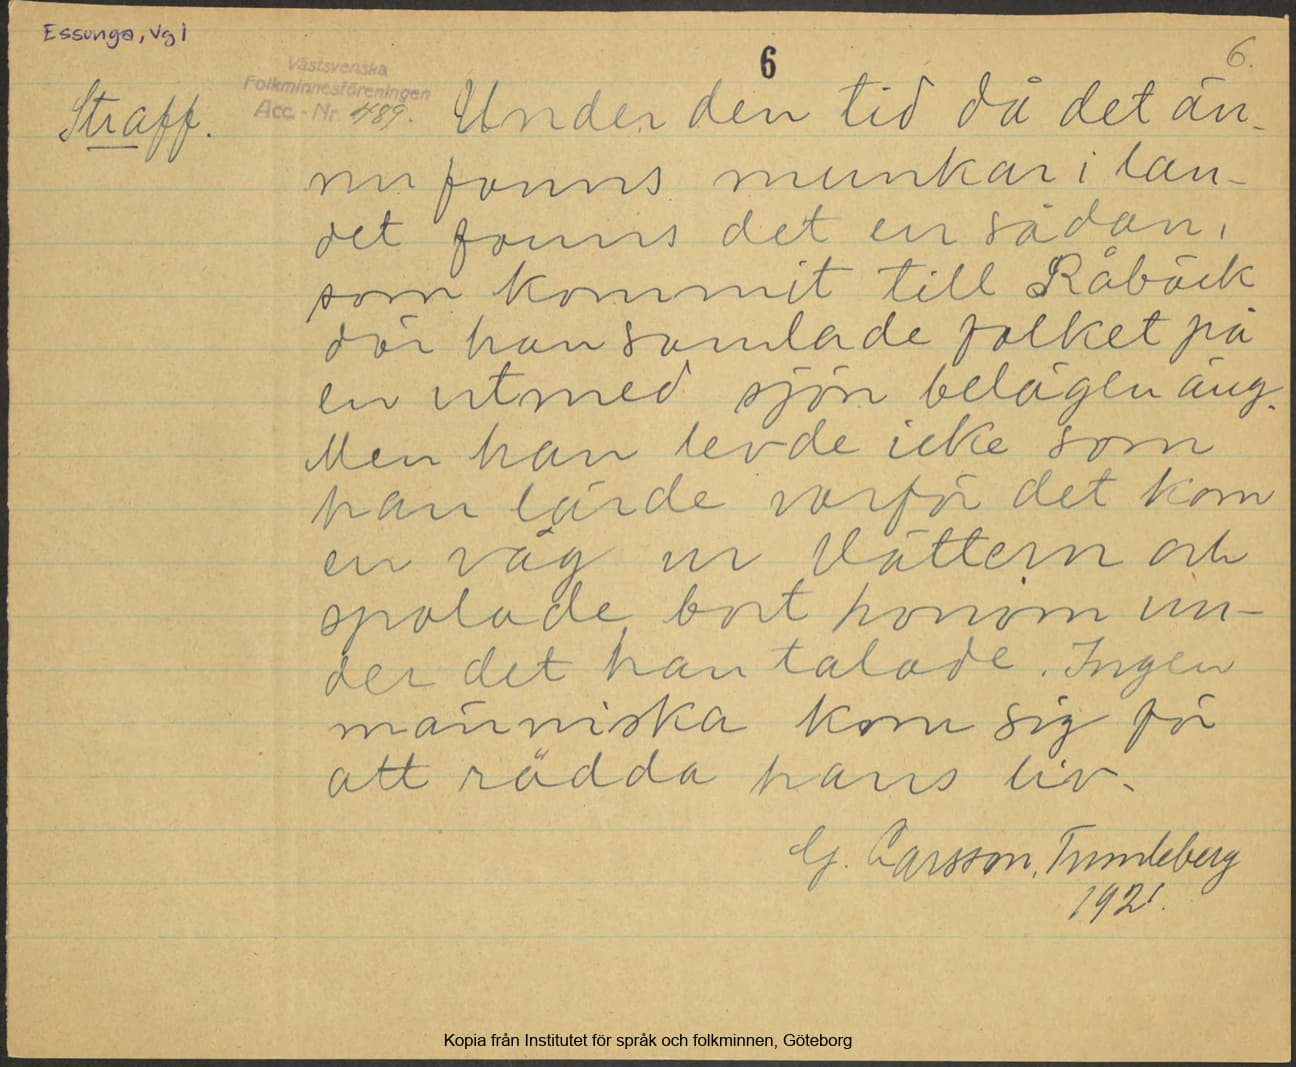 Essunga, Vgl
6
6.
Västsvenska
Folkminnesföreningen
Acc. - Nr. 489.
Straff.
Under den tid då det än-
nu fanns munkar i lan-
det fanns det en sådan,
som kommit till Råbäck
där han samlade folket på
en utmed sjön belägen äng.
Men han levde icke som
han lärde varför det kom
en våg ur Vättern och
spolade bort honom un-
der det han talade. Ingen
människa kom sig för
att rädda hans liv.
G. Carsson,
1921.
Kopia från Institutet för språk och folkminnen, Göteborg